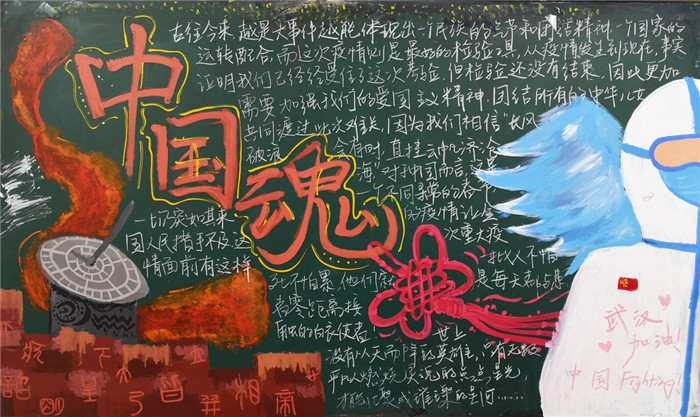 中国魂
古往今来,越是大事件越能体现出一个民族的气节和团结精神,一个国家的
运转配合,而这次疫情则是最好的检验工具,从疫情发生到现在,事实
证明我们已经经受住了这次考验,但检验还没有结束,因此更加
需要加强我们的爱国主义精神,团结所有的中华儿女
共同渡过此次难关,因为我们相信"长风
破浪会有时,直挂云帆济沧
海"对我中国而言,这是
一个不同寻常的春节
的疫情让全
次重大疫
一切突如其来
国人民措手不及这
情面前有这样
批人不怕
死不怕累,他们
是每天都
着零距离接
的白衣使者!
世上
没有从天而降的英雄,只有
平凡
武汉
加油!
中国 Fighting!